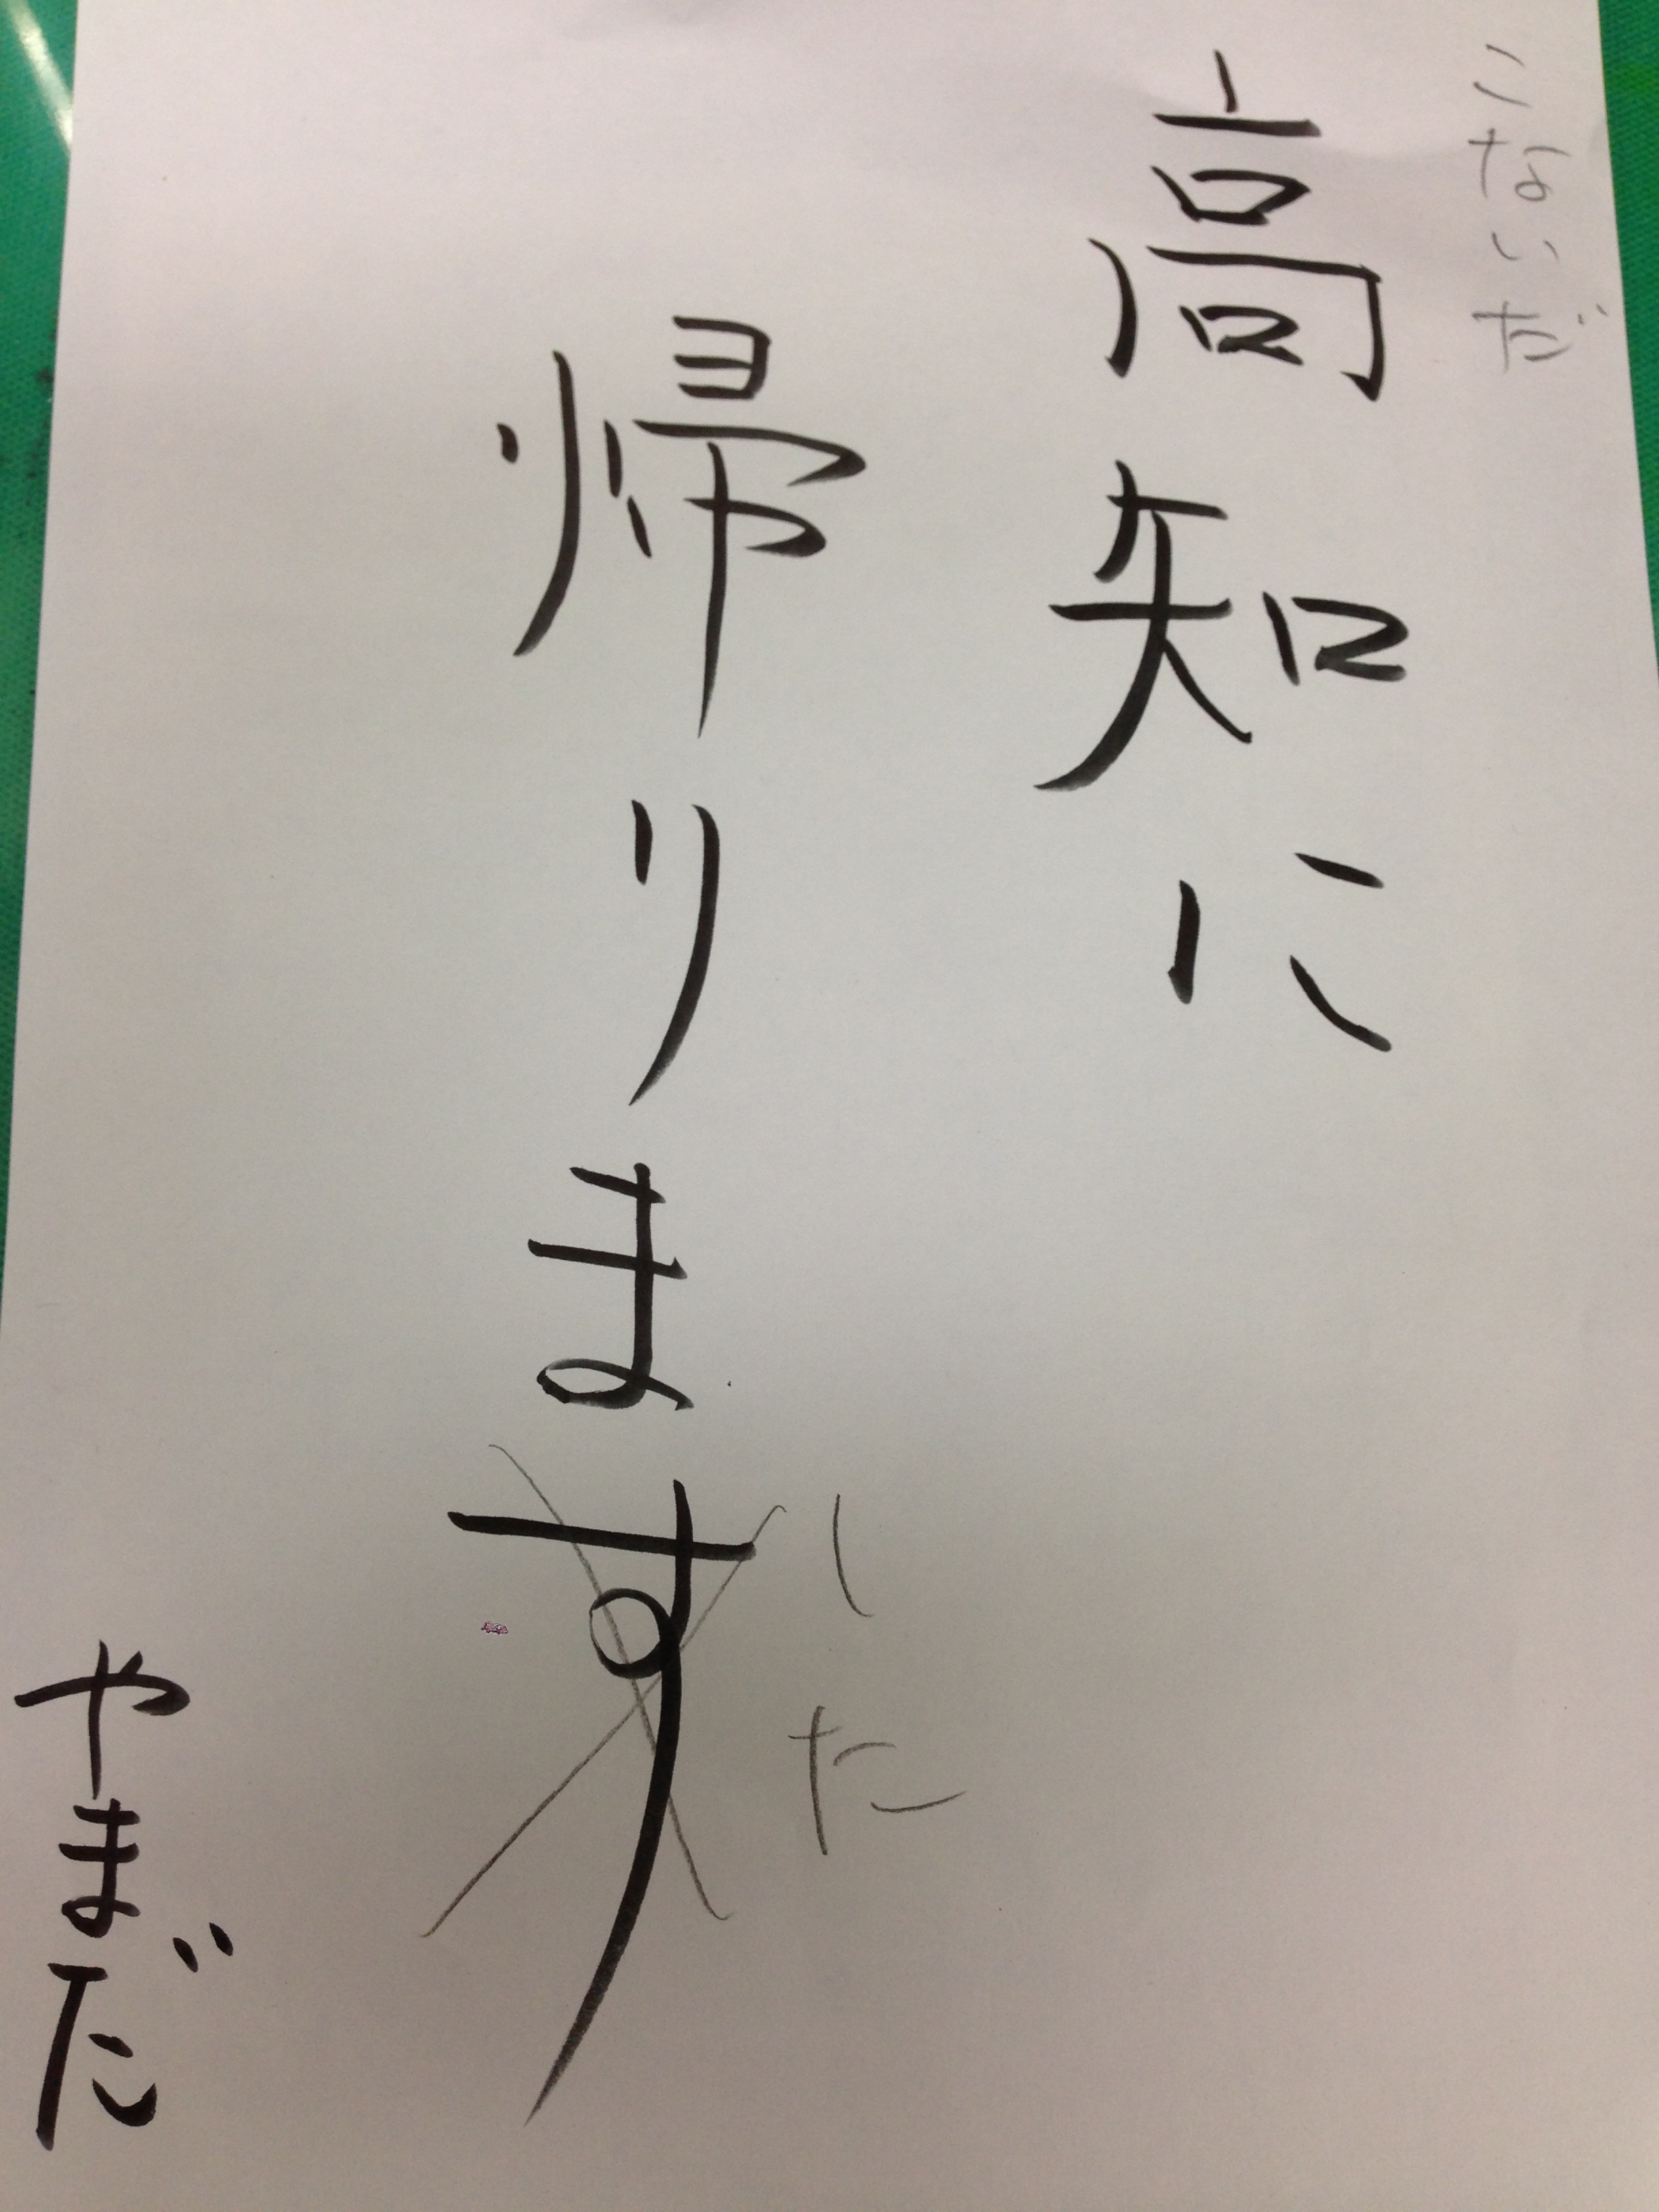 こないだ
高知に
帰ります
した
やまだ